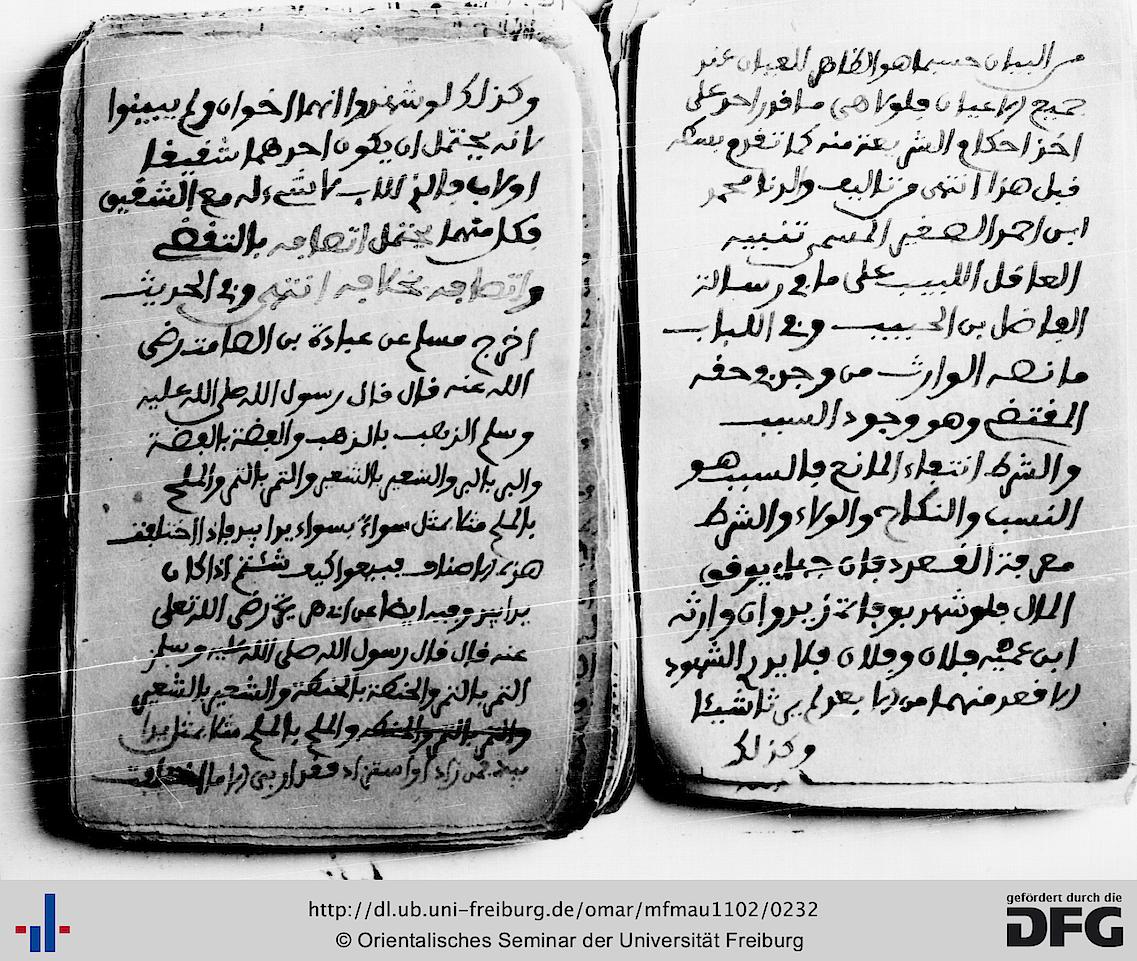 من البيان حسبما هو الظاهر للعيان عند
جميع الاعيان فلولا هي ما قدر احد على
اخذ احكام الشريعة منه كما تقدم بسطه
قبل هذا انتهى من تاليف والدنا محمد
ابن احمد الصغير المسمى تنبيه
العاقل اللبيب على ما في رسالة
الفاضل بن الحبيب وفي اللباب
ما نصه الوارث من وجد في حقه
المقتضي وهو وجود السبب
والشرط انتفاء المانع فالسبب هو
النسب والنكاح والولاء والشرط
معرفة القعدد فان جهل يوقف
المال فلو شهد بوفاة زيد وان وارثه
ابن عميه فلان وفلان فلا يدري الشهود
الاقعد منهما من الابعد لم يرثا شيئا
وكذلك
وكذلك لو شهدوا انهما اخوان ولم يبينوا
لانه يحتمل ان يكون احدهما شقيقا
او لاب فالذي للاب لا شيء له مع الشقيق
فكل منهما يحتمل اتصافه بالتقضي
واتصافه بخلافه انتهى وفي الحديث
اخرج مسلم عن عبادة بن الصامت رضي
الله عنه قال قال رسول الله صلى الله عليه
وسلم الذهب بالذهب والفضة بالفضة
والبر بالبر والشعير بالشعير والتمر بالتمر والملح
بالملح مثلا بمثل سواء بسواء يدا بيد فاذا اختلفت
هذه الاصناف فبيعوا كيف شئتم اذا كان
يدا بيد وفيه ايضا عن ابي هريرة رضي الله تعلى
عنه قال قال رسول الله صلى الله عليه وسلم
التمر بالتمر والحنطة بالحنطة والشعير بالشعير
والملح بالملح مثلا بمثل يدا
بيد فمن زاد او استزاد فقد اربى الا ما اختلفت
http://dl.ub.uni-freiburg.de/omar/mfmau1102/0232
© Orientalisches Seminar der Universität Freiburg
gefördert durch die
DFG